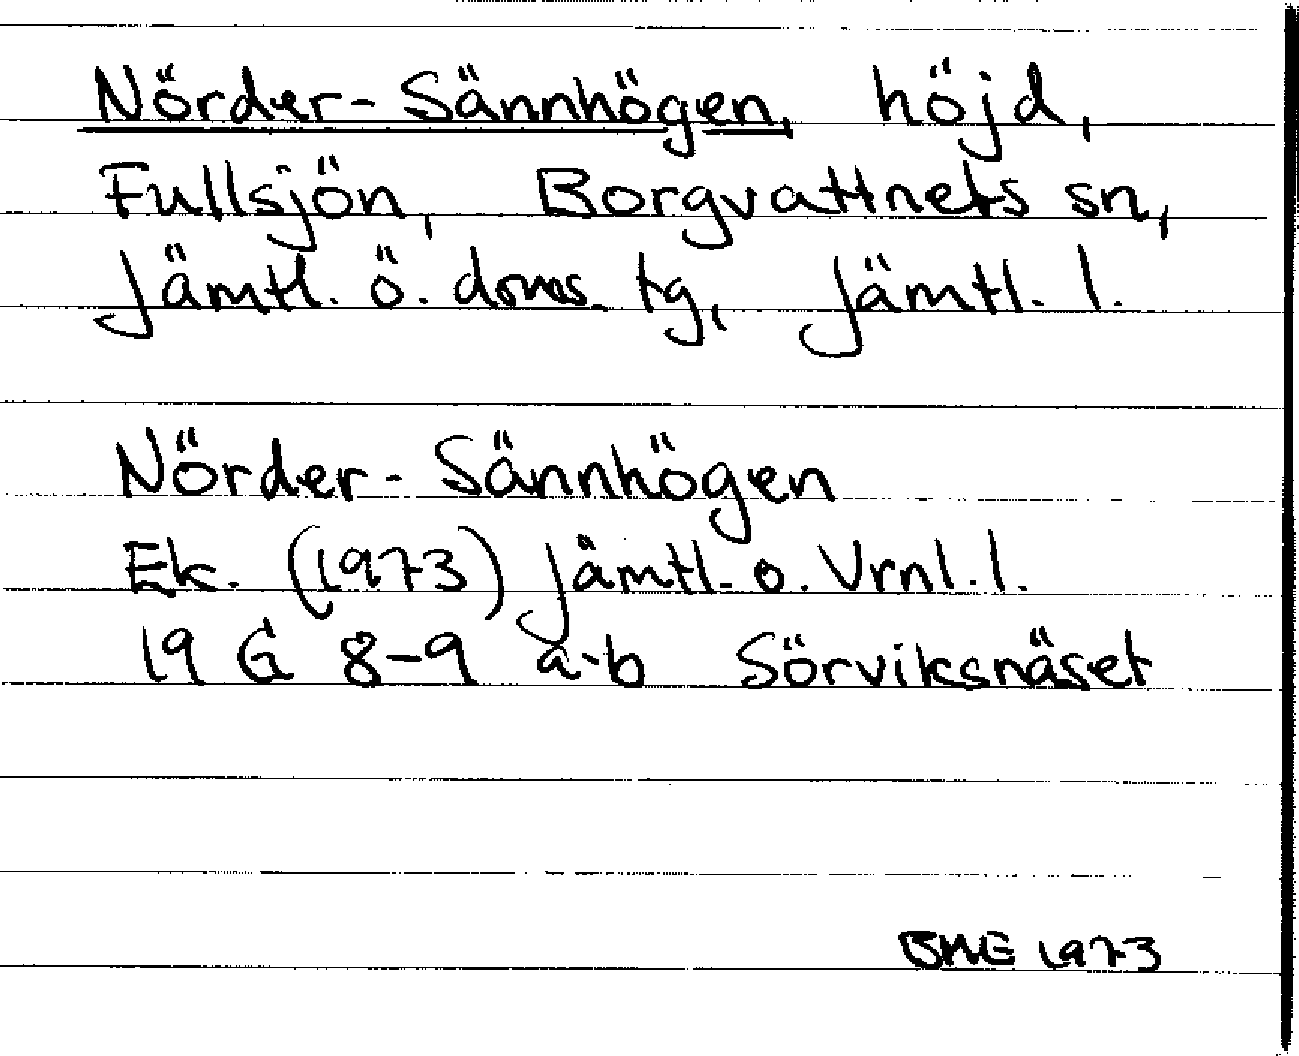 Nörder-Sännhögen, höjd,
Fullsjön, Borgvattnets sn,
Jämtl. ö. doms. tg, Jämtl. l.
Nörder-Sännhögen
Ek. (1973) Jämtl. o. Vrnl. l.
19 G 8-9 a-b Sörviksnäset
1973